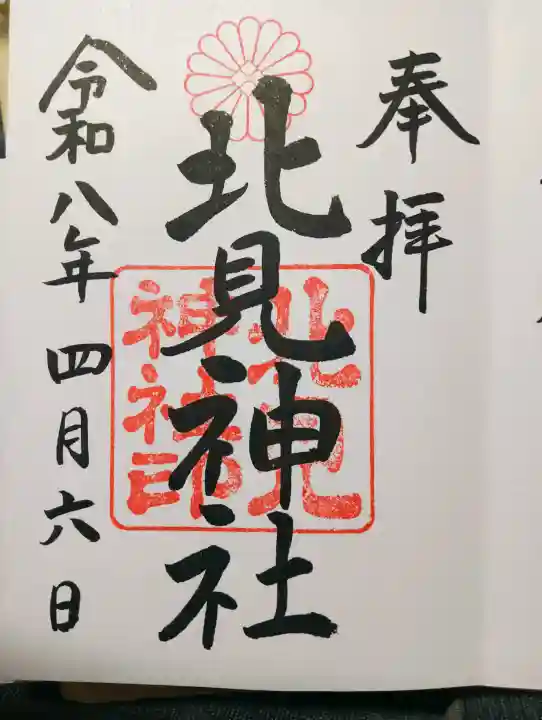 奉拝
北見神社
北見
神社印
令和八年四月六日